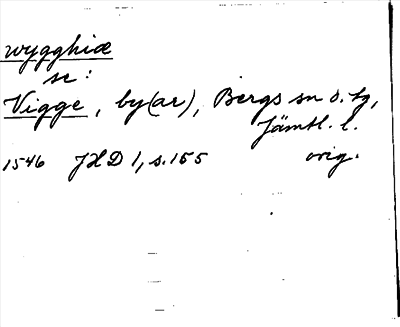 wygghiæ
se:
Vigge, by(ar), Bergs sn o. tg,
Jämtl. l.
1546 JHD 1, s. 155 orig.